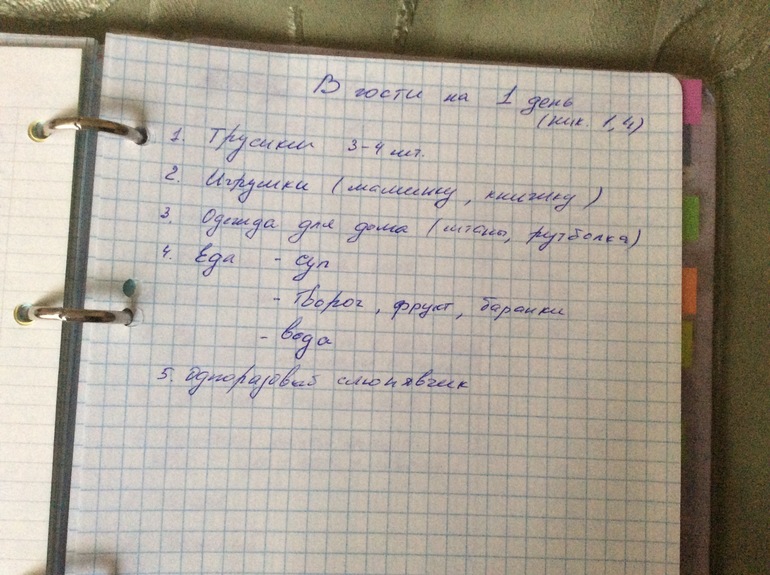 В гости на 1 день
(ник. 1,4)
1. Трусики 3-4 шт.
2. Игрушки (машинку, книжку)
3. Одежда для дома (штаны, футболка)
4. Еда - суп
- творог, фрукт, баранки
- вода
5. Одноразовый слюнявчик